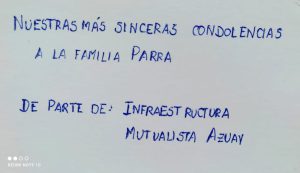 Nuestras más sinceras condolencias
a la familia Parra
De parte de: Infraestructura
Mutualista Azuay
REDMI NOTE 10